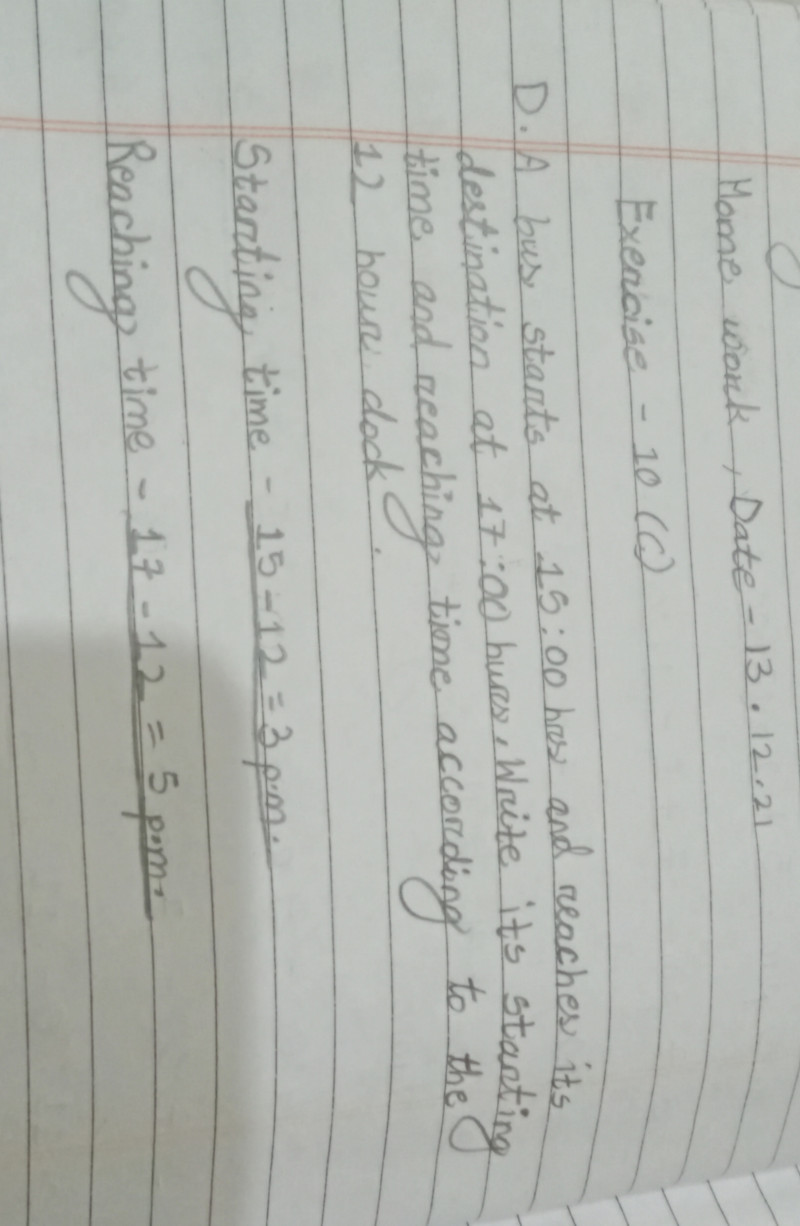 Home work, Date - 13.12.21
Exercise - 10 (C)
D. A bus starts at 15:00 hrs and reaches its
destination at 17:00 hurs. Write its starting
time and reaching time according to the
12 hour clock.
Starting time - 15-12 = 3 p.m.
Reaching time - 17-12 = 5 p.m.